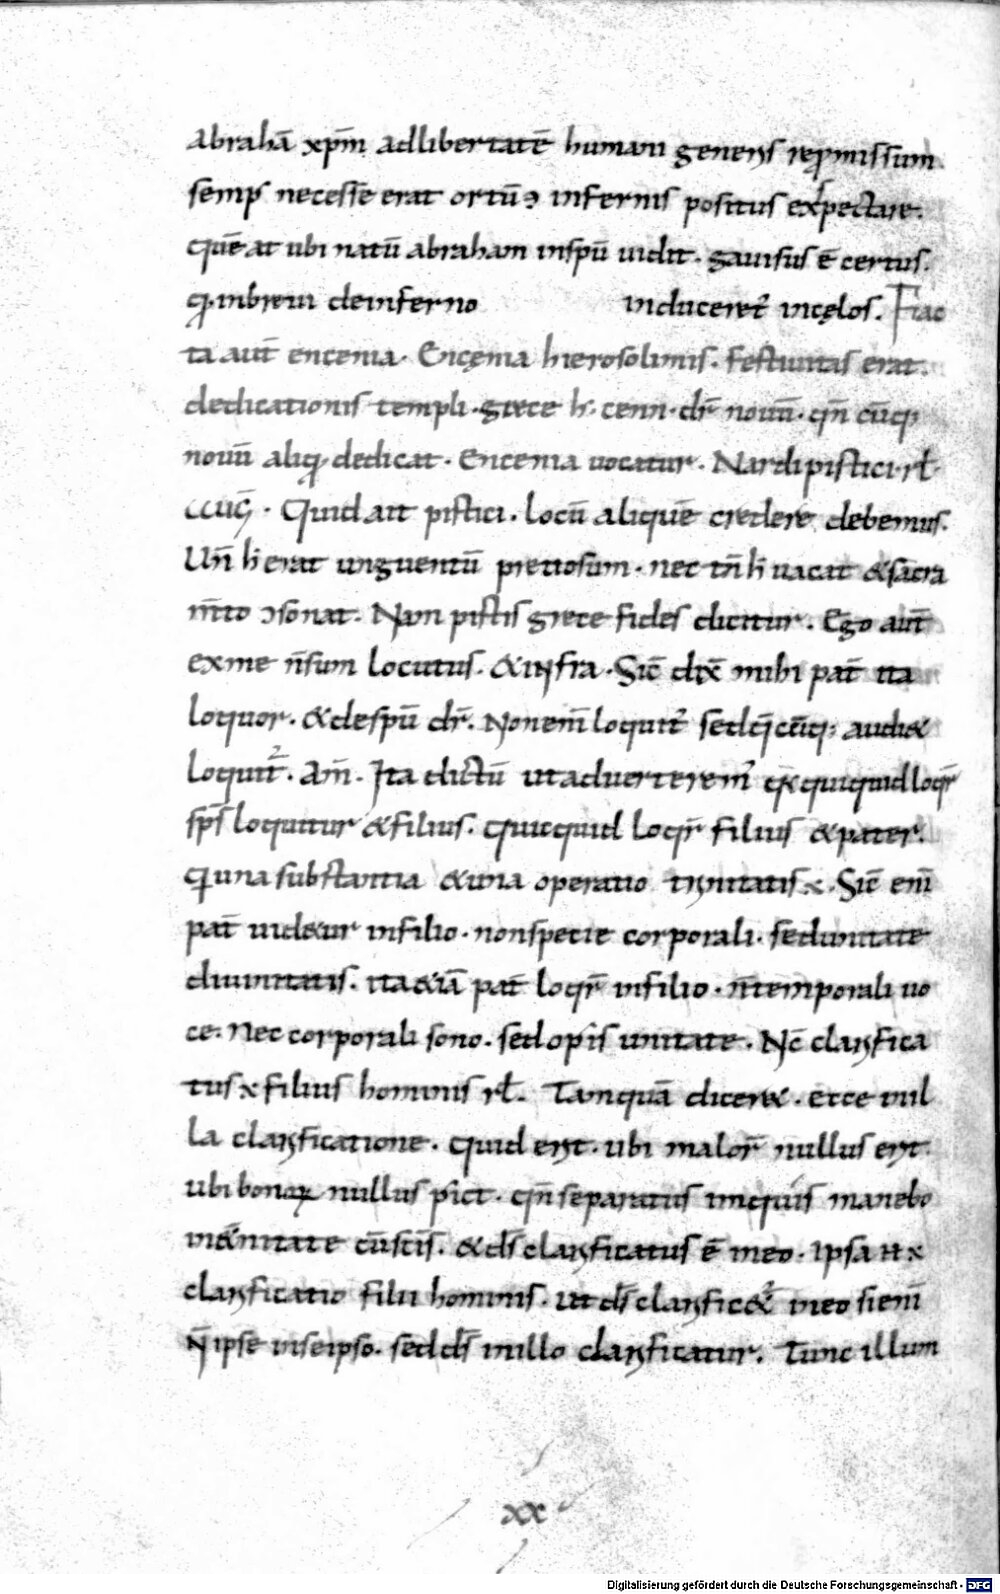 abrahā xp̄m adlibertatē humani generis repromissum.
semp necesse erat ortūꝰ infernis positus expectare.
quē at ubi natū abraham inspū uidit. gauisus ē certus.
q̇ inbreui deinferno induceret̉ incęlos. Fac
ta aut̄ encenia. Encęnia hierosolimis. festiuitas erat.
dedicationis templi. grece h̄. cenn. dr̄ nouū. qn̄ cūq;
nouū aliq̇ dedicat. Encenia uocatur. Nardi pistici. rł.
Quid ait pistici. locū aliquē credere debemus.
Un̄ h̄ erat unguentū pretiosum. nec tn̄ h̄ uacat & sacra
m̄to ɔsonat. Nam pistis grece fides dicitur. Ego aut̄
exme n̄sum locutus. & infra. Sic̄ dix̄ mihi pat̄ ita
loquor. & despū dr̄. Nonem̄ loquit̉ sedq̄cūq; audi&
loquit̉. Am̄. Ita dictū utaduerterem̉ q̇ quicquid loqr̄
sp̄s loquitur & filius. quicquid loqr̄ filius & pater.
q̇ una substantia & una operatio trinitatis ÷. Sic̄ eni
pat̄ uid&ur infilio. nonspecie corporali. sedunitate
diuinitatis. ita &iā pat̄ loqr̄ infilio. n̄temporali uo
ce. Nec corporali sono. sed opis unitate. Nc̄ clarifica
tus ÷ filius hominis rł. Tamquā dicer&. ecce inil
la clarificatione. quid erit. ubi malor̄ nullus erit.
ubi bonoꝝ nullus piet. qn̄ separatus iniquis manebo
in&̄nitate cūsc̄is. & ds̄ clarificatus ē ineo. Ipsa ÷
clarificatio filii hominis. ut ds̄ clarific&̉ ineo sieni
n̄ ipse inseipso. sed ds̄ inillo clarificatur. Tunc illum
xx
Digitalisierung gefördert durch die Deutsche Forschungsgemeinschaft - DFG